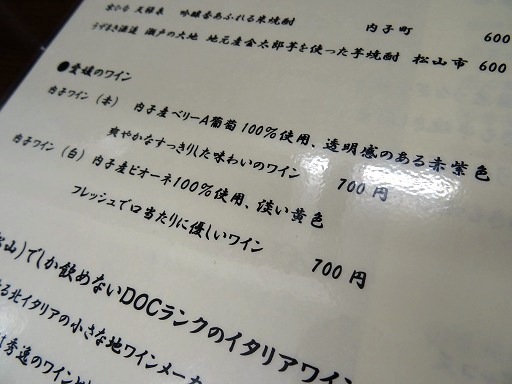 吟醸香あふれる米焼酎 内子町 600
うずまき酒造 瀬戸の大地 地元産金太郎芋を使った芋焼酎 松山市 600
●愛媛のワイン
内子ワイン（赤） 内子産ベリーA葡萄100％使用、透明感のある赤紫色
爽やかなすっきりした味わいのワイン 700 円
内子ワイン（白）内子産ピオーネ100％使用、淡い黄色
フレッシュで口当たりに優しいワイン 700 円
山)でしか飲めないDOCランクのイタリアワイン
る北イタリアの小さな地ワインメーカ
秀逸のワインと